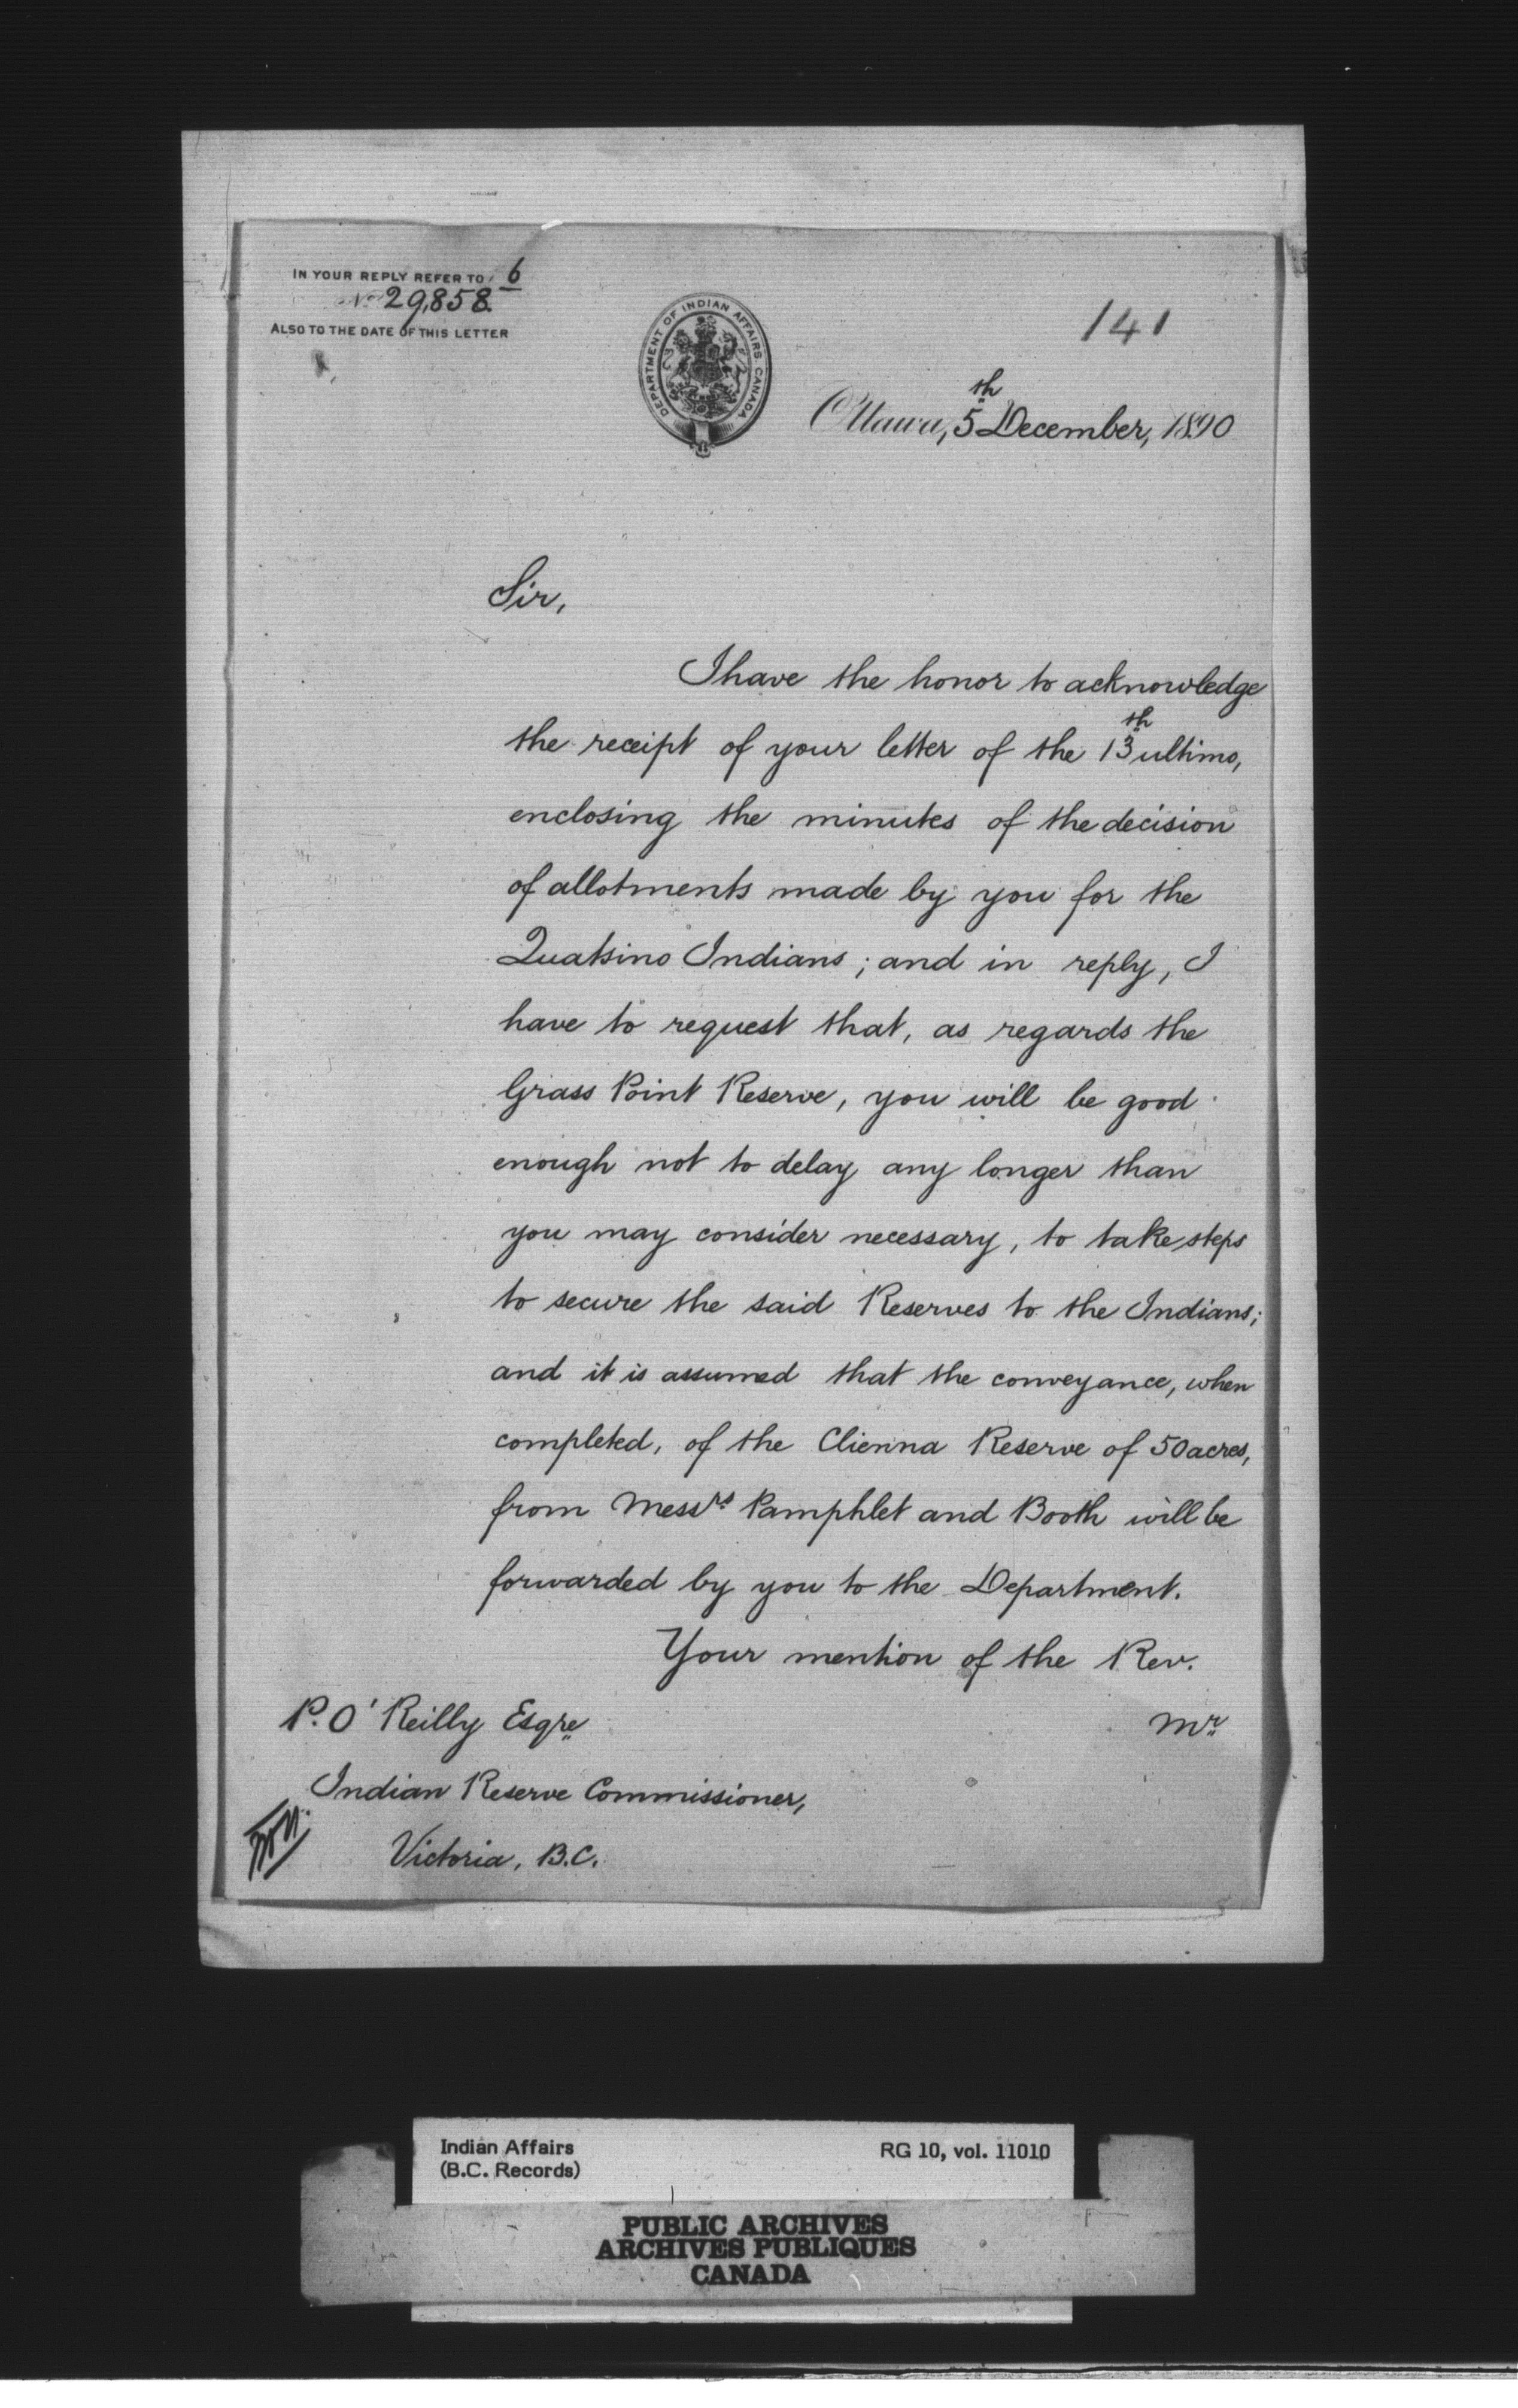 IN YOUR REPLY REFER TO 6
No 29,858.
ALSO TO THE DATE OF THIS LETTER
DEPARTMENT OF INDIAN AFFAIRS. CANADA
141
Ottawa, 5th December, 1890
Sir,
I have the honor to acknowledge
the receipt of your letter of the 13th ultimo,
enclosing the minutes of the decision
of allotments made by you for the
Quatsino Indians; and in reply, I
have to request that, as regards the
Grass Point Reserve, you will be good
enough not to delay any longer than
you may consider necessary, to take steps
to secure the said Reserves to the Indians;
and it is assumed that the conveyance, when
completed, of the Clienna Reserve of 50 acres,
from Messrs Pamphlet and Booth will be
forwarded by you to the Department.
Your mention of the Rev.
Mr
P. O'Reilly Esqre
Indian Reserve Commissioner,
Victoria, B.C.
Indian Affairs
(B.C. Records)
RG 10, vol. 11010
PUBLIC ARCHIVES
ARCHIVES PUBLIQUES
CANADA